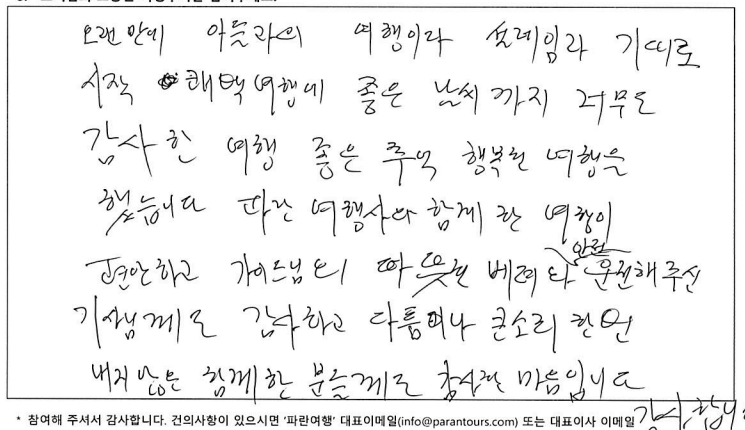 오랜만에 아들과의 여행이라 설레임과 기대로
시작 쾌백여행에 좋은 날씨까지 너무도
감사한 여행 좋은 추억 행복한 여행을
했습니다 파란여행사와 함께 한 여행이
안전
편안하고 가이드님의 따뜻한 베려와 운전해주신
기사님께도 감사하고 다툼이나 큰소리 한번
내지않은 함께한 분들께도 감사한 마음입니다
감사합니다
* 참여해 주셔서 감사합니다. 건의사항이 있으시면 '파란여행' 대표이메일(info@parantours.com) 또는 대표이사 이메일